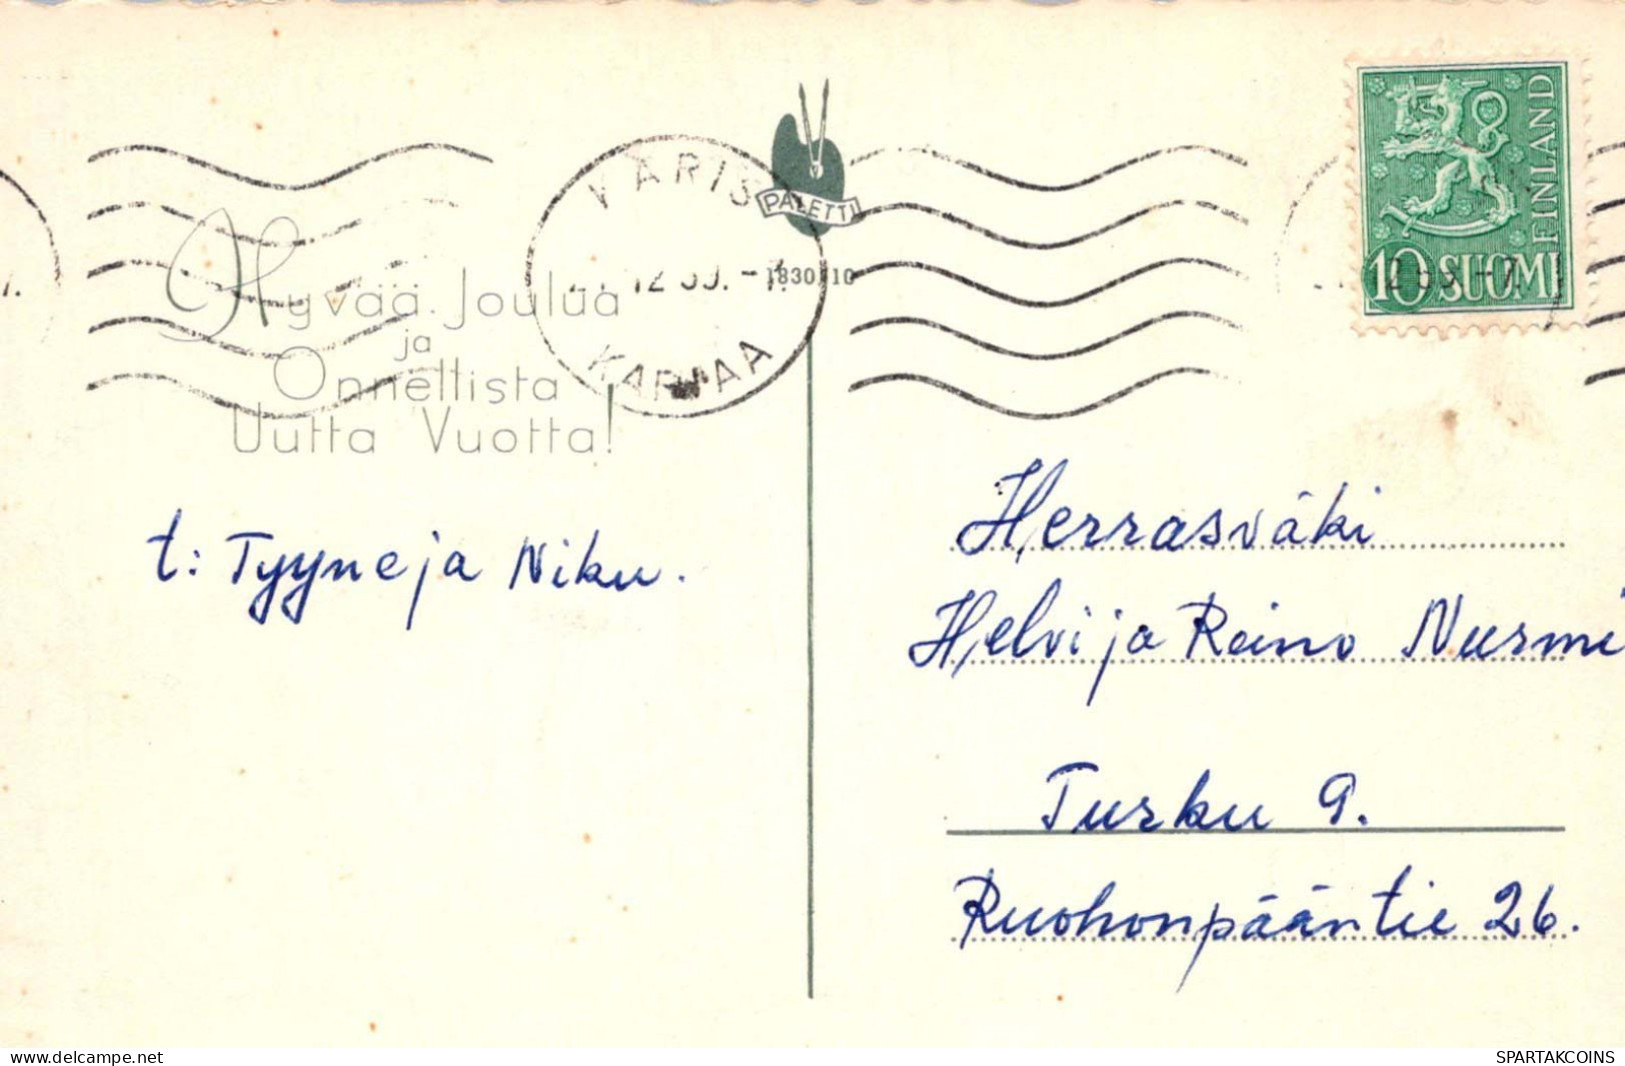 PALETTI
1830/10
KARJAA
FINLAND
10 SUOMI
Hyvää Joulua
ja
Onnellista
Uutta Vuotta!
t: Tyyne ja Niku.
Herrasväki
Helvi ja Reino Nurmi
Turku 9.
Ruohonpääntie 26.
www.delcampe.net
SPARTAKCOINS